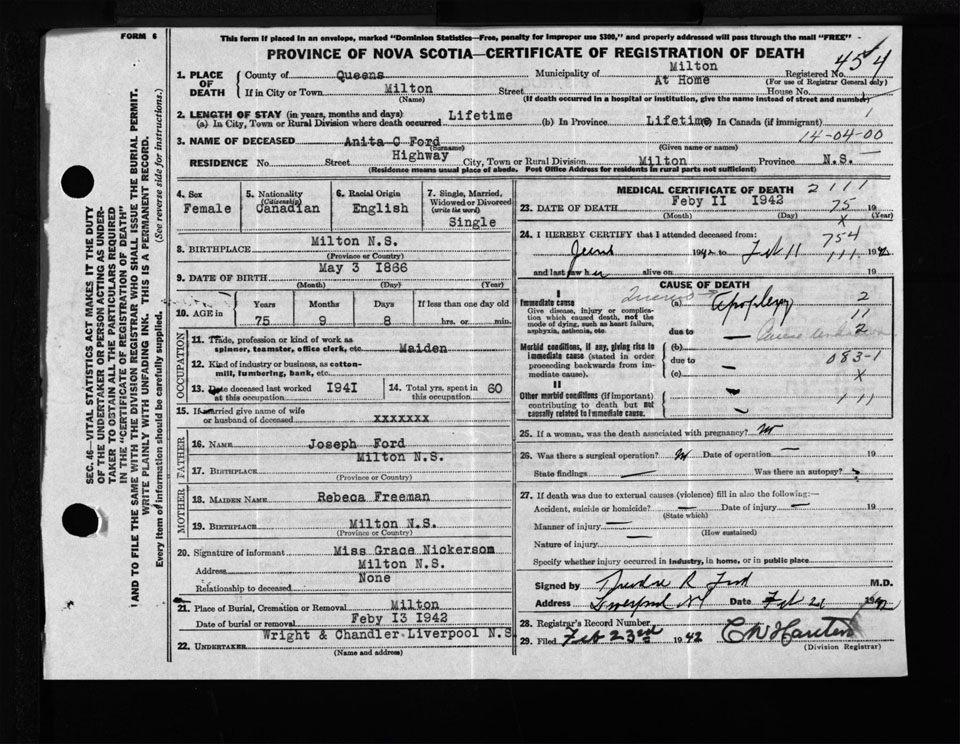 FORM 6
This form if placed in an envelope, marked "Dominion Statistics—Free, penalty for improper use $300," and properly addressed will pass through the mail "FREE"
PROVINCE OF NOVA SCOTIA—CERTIFICATE OF REGISTRATION OF DEATH
SEC. 46—VITAL STATISTICS ACT MAKES IT THE DUTY
OF THE UNDERTAKER OR PERSON ACTING AS UNDER-
TAKER TO OBTAIN ALL THE PARTICULARS REQUIRED
IN THE "CERTIFICATE OF REGISTRATION OF DEATH"
AND TO FILE THE SAME WITH THE DIVISION REGISTRAR WHO SHALL ISSUE THE BURIAL PERMIT.
WRITE PLAINLY WITH UNFADING INK. THIS IS A PERMANENT RECORD.
Every item of information should be carefully supplied. (See reverse side for instructions.)
1. PLACE OF DEATH
County of Queens Municipality of Milton Registered No. 454
(For use of Registrar General only)
If in City or Town Milton Street At Home House No.
(Name) (If death occurred in a hospital or institution, give the name instead of street and number)
2. LENGTH OF STAY (in years, months and days)
(a) In City, Town or Rural Division where death occurred Lifetime (b) In Province Lifetime (c) In Canada (if immigrant)
14-04-00
3. NAME OF DECEASED Anita C Ford
(Surname) (Given name or names)
RESIDENCE No. Street Highway City, Town or Rural Division Milton Province N.S.
(Residence means usual place of abode. Post Office Address for residents in rural parts not sufficient)
4. Sex Female
5. Nationality (Citizenship) Canadian
6. Racial Origin English
7. Single, Married, Widowed or Divorced (write the word) Single
8. BIRTHPLACE Milton N.S.
(Province or Country)
9. DATE OF BIRTH May 3 1866
(Month) (Day) (Year)
10. AGE in Years Months Days If less than one day old
75 9 8 hrs. or min.
OCCUPATION
11. Trade, profession or kind of work as
spinner, teamster, office clerk, etc. Maiden
12. Kind of industry or business, as cotton-
mill, lumbering, bank, etc.
13. Date deceased last worked at this occupation 1941
14. Total yrs. spent in this occupation 60
15. If married give name of wife
or husband of deceased xxxxxxx
FATHER
16. NAME Joseph Ford
17. BIRTHPLACE Milton N.S.
(Province or Country)
MOTHER
18. MAIDEN NAME Rebeca Freeman
19. BIRTHPLACE Milton N.S.
(Province or Country)
20. Signature of informant Miss Grace Nickerson
Address Milton N.S.
Relationship to deceased None
21. Place of Burial, Cremation or Removal Milton
Date of burial or removal Feby 13 1942
22. UNDERTAKER Wright & Chandler Liverpool N.S.
(Name and address)
MEDICAL CERTIFICATE OF DEATH 2111
23. DATE OF DEATH Feby 11 1942 75 19
(Month) (Day) (Year)
x
24. I HEREBY CERTIFY that I attended deceased from: 754
1942 to Feb 11 1942
and last saw her alive on 19
CAUSE OF DEATH
I
Immediate cause (a) Apoplexy 2
Give disease, injury or complica-
tion which caused death, not the
mode of dying, such as heart failure,
asphyxia, asthenia, etc. 11
due to 2
Morbid conditions, if any, giving rise to
immediate cause (stated in order
proceeding backwards from im-
mediate cause). (b)
due to 083-1
(c) x
II
Other morbid conditions (if important)
contributing to death but not
causally related to immediate cause. 111
25. If a woman, was the death associated with pregnancy?
26. Was there a surgical operation? Date of operation 19
State findings Was there an autopsy?
27. If death was due to external causes (violence) fill in also the following:—
Accident, suicide or homicide? Date of injury 19
(State which)
Manner of injury
(How sustained)
Nature of injury
Specify whether injury occurred in industry, in home, or in public place
Signed by M.D.
Address Liverpool NS Date 1942
28. Registrar's Record Number
29. Filed Feb 23rd 1942
(Division Registrar)